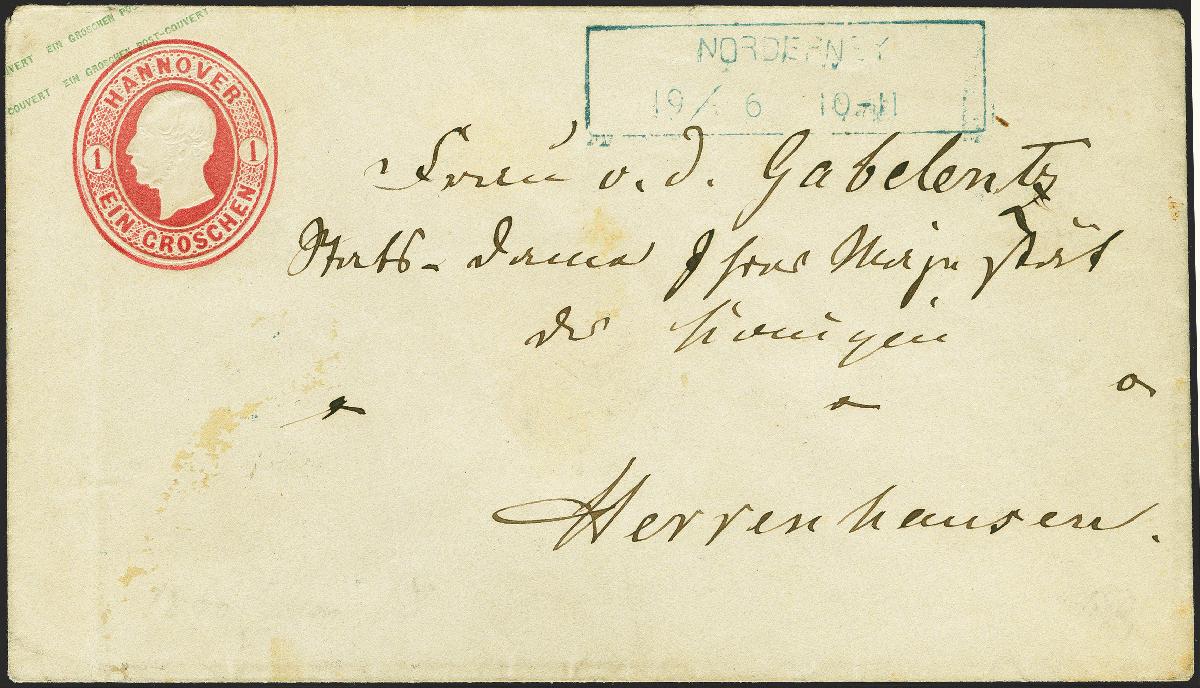 UVERT EIN GROSCHEN PO
COUVERT EIN GROSCHEN POST-COUVERT
HANNOVER
1 1
EIN GROSCHEN
NORDERNEY
19/6 10-11
Frau v. d. Gabelentz
Staats-Dame Ihrer Majestät
der Königin
Herrenhausen.